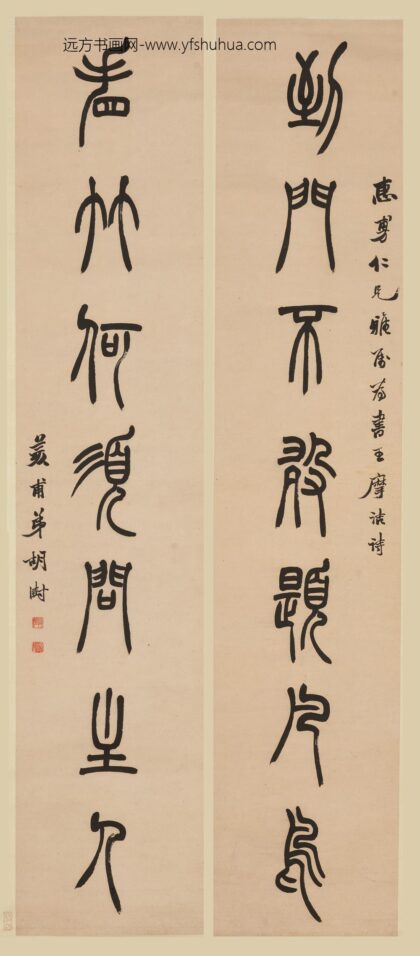 远方书画网-www.yfshuhua.com
惠仁兄雅屬為書王摩詰詩
到門不敢題凡鳥
看竹何須問主人
荄甫弟胡澍